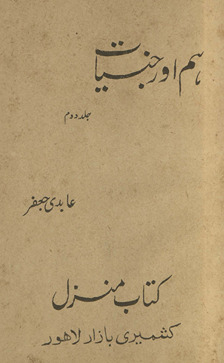 ہم اور جنسیات
جلد دوم
عابدی جعفر
کتاب منزل
کشمیری بازار لاہور